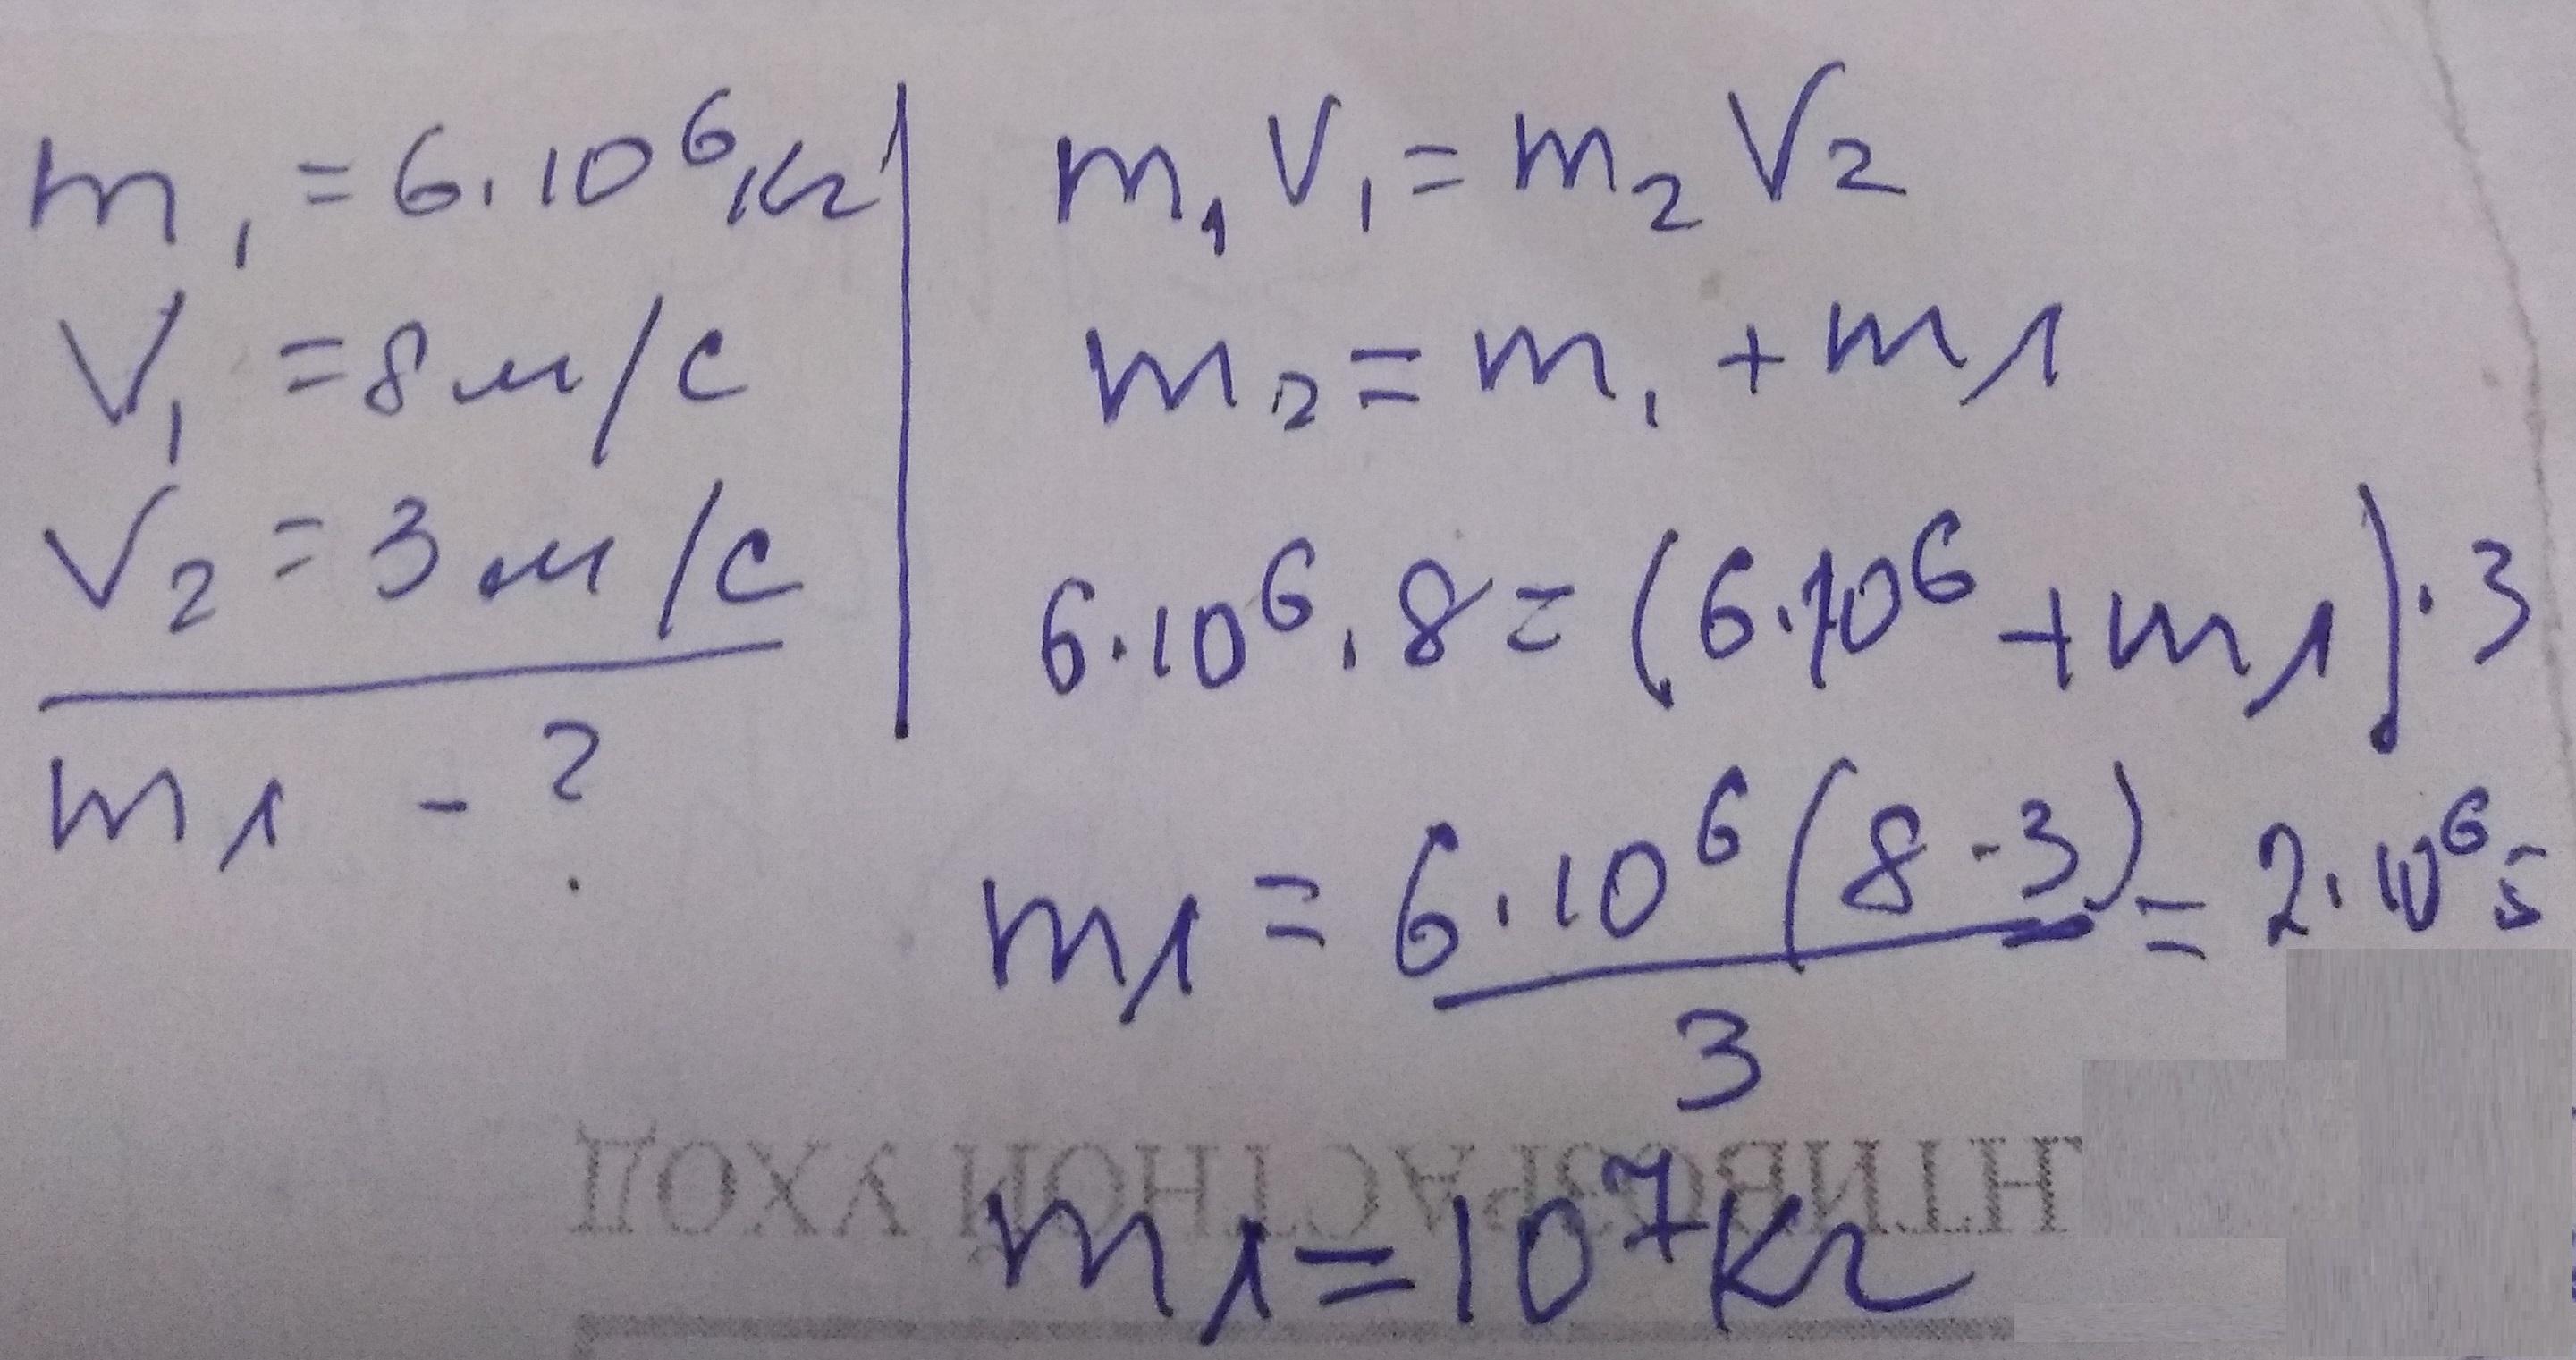 m₁ = 6·10⁶ кг
V₁ = 8 м/с
V₂ = 3 м/с
mл - ?
m₁V₁ = m₂V₂
m₂ = m₁ + mл
6·10⁶·8 = (6·10⁶ + mл)·3
mл = 6·10⁶(8-3)/3 = 2·10⁶·5
mл = 10⁷ кг
НТИВОЗРАСТНОЙ УХОД